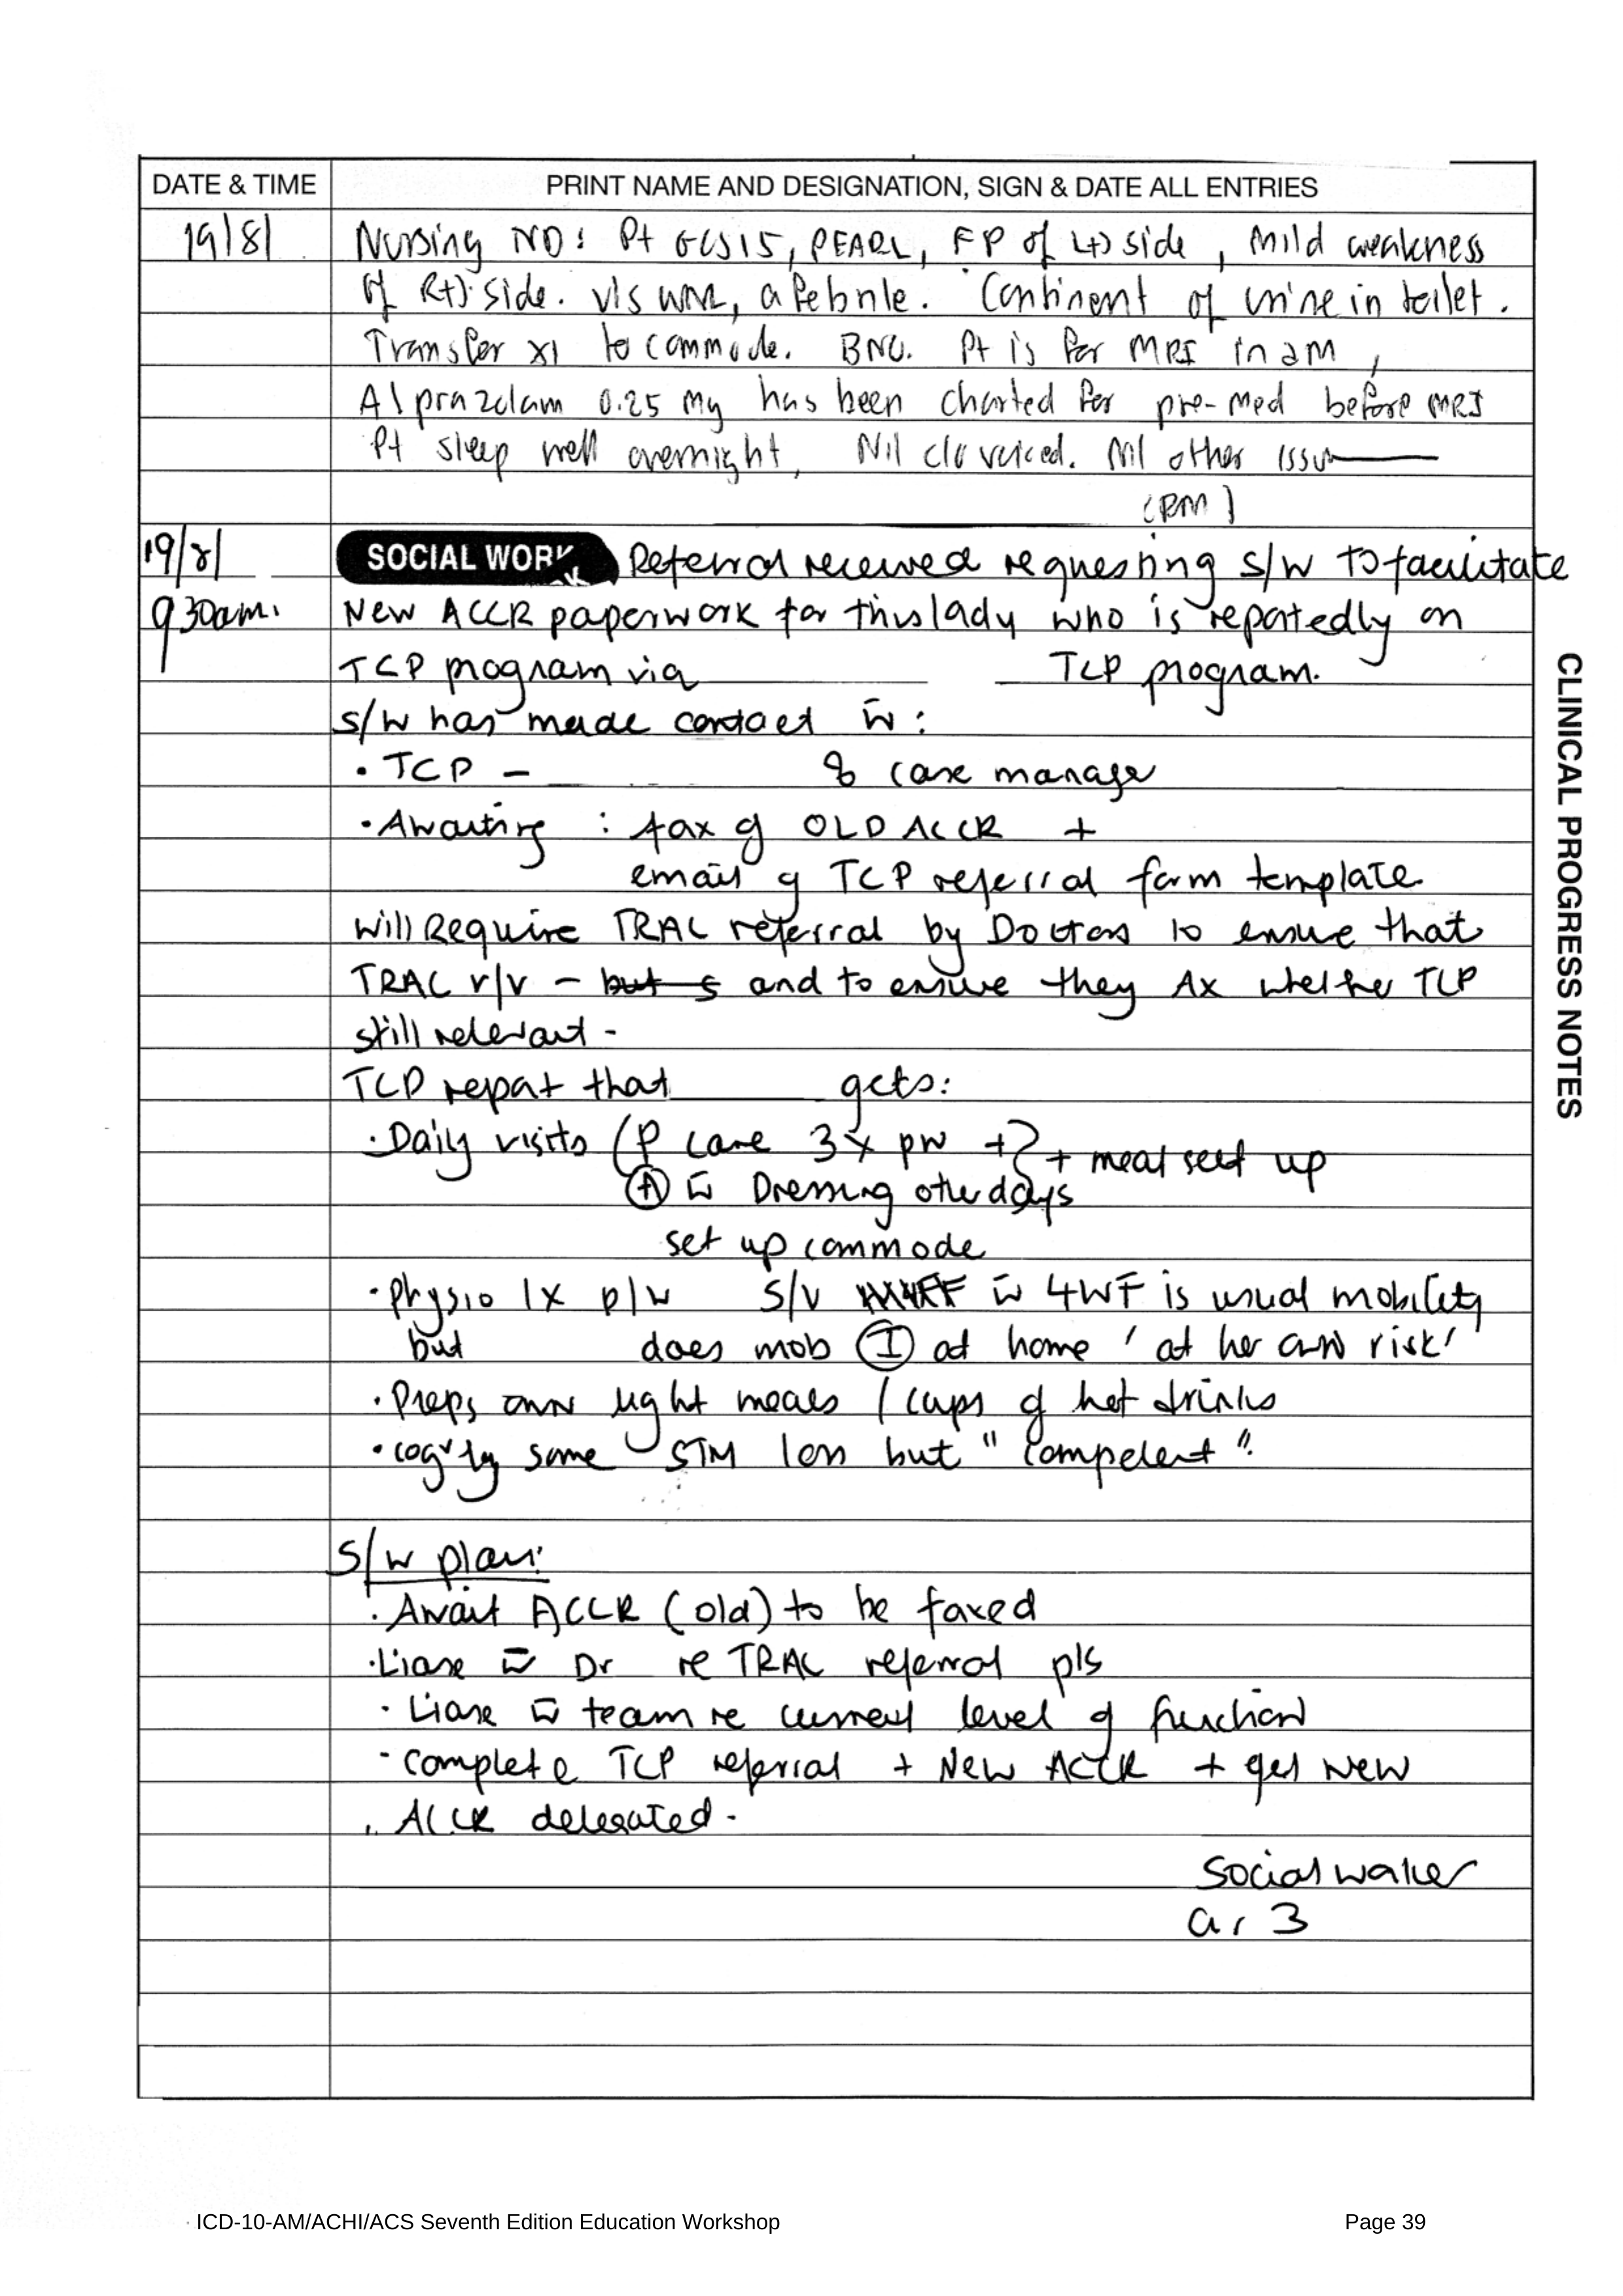 DATE & TIME PRINT NAME AND DESIGNATION, SIGN & DATE ALL ENTRIES
19/8/ Nursing ND: Pt GCS15, PEARL, FP of L+) side, Mild weakness
of R+) side. v/s WNL, afebrile. Continent of urine in toilet.
Transfer x1 to commode. BNO. Pt is for MRI in am,
Alprazolam 0.25 mg has been charted for pre-med before MRI
Pt sleep well overnight, Nil c/o voiced. Nil other issu
(RM)
19/8/ SOCIAL WORK Referral received requesting s/w to facilitate
930am. New ACCR paperwork for this lady who is reportedly on
TCP program via TCP program.
s/w has made contact w̄:
• TCP – case manager
• Awaiting : fax of OLD ACCR +
email of TCP referral form template
will Require TRAC referral by Doctors to ensure that
TRAC r/v – but s and to ensure they Ax whether TCP
still relevant -
TCP report that gets:
• Daily visits (P care 3x pw +? + meal set up
(A) w̄ Dressing other days
set up commode
• Physio 1x p/w s/v w̄ 4WF is usual mobility
but does mob (I) at home 'at her own risk'
• Preps own light meals / cups of hot drinks
• cog'ly some STM loss but "competent".
S/w plan:
• Await ACCR (old) to be faxed
• Liase w̄ Dr re TRAC referral pls
• Liase w̄ team re current level of function
- complete TCP referral + New ACCR + get New
ACCR delegated -
Social worker
Gr 3
CLINICAL PROGRESS NOTES
ICD-10-AM/ACHI/ACS Seventh Edition Education Workshop Page 39